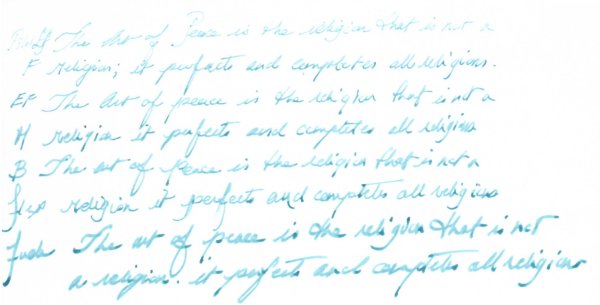 The Art of Peace is the religion that is not a
F religion; it perfects and completes all religions.
EF The Art of peace is the religion that is not a
M religion it perfects and completes all religions
B The art of Peace is the religion that is not a
flex religion it perfects and completes all religions
The art of peace is the religion that is not
a religion. it perfects and completes all religions